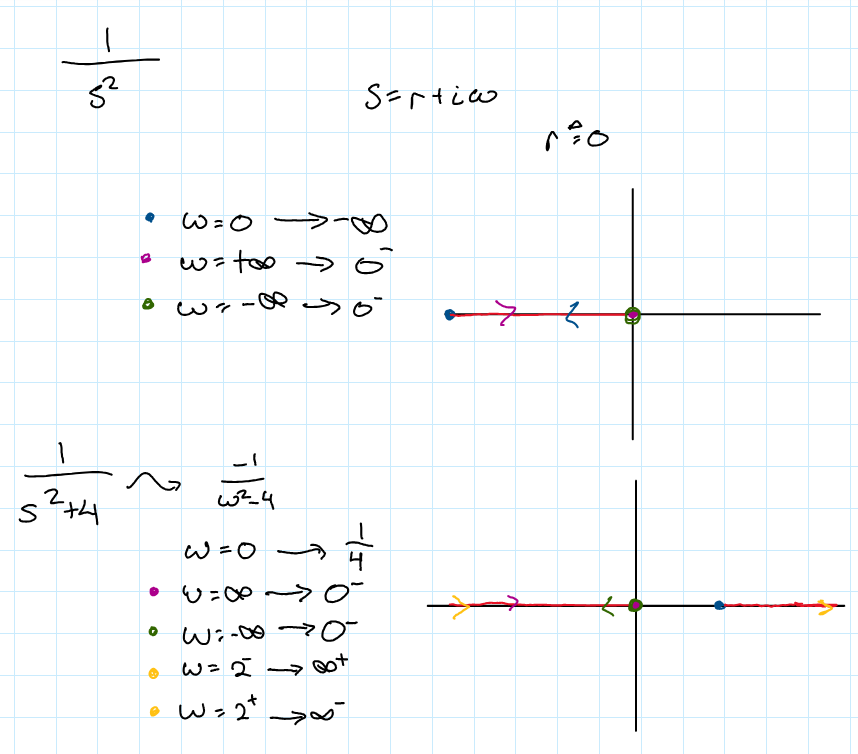 1/s²
s=r+iω
r≜0
ω=0 → -∞
ω=+∞ → 0⁻
ω=-∞ → 0⁻
1/(s²+4) ⤳ -1/(ω²-4)
ω=0 → 1/4
ω=∞ → 0⁻
ω=-∞ → 0⁻
ω=2⁻ → ∞⁺
ω=2⁺ → ∞⁻